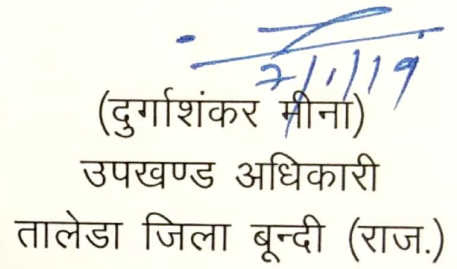 7/1/19
(दुर्गाशंकर मीना)
उपखण्ड अधिकारी
तालेडा जिला बून्दी (राज.)